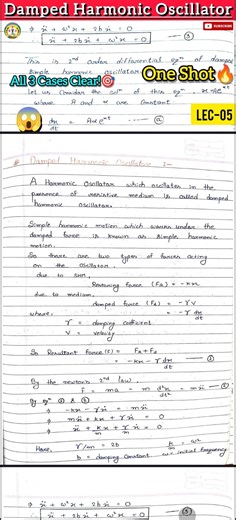 Damped Harmonic Oscillator
SUBSCRIBE
⇒ ẍ + ω²x + 2bẋ = 0
∴ ẍ + 2bẋ + ω²x = 0 —— ③
This is 2nd order differential eqn of damped
simple harmonic oscillator
One Shot🔥
All 3 Cases Clear!🎯
Let us Consider the solⁿ of this eqn, x = Ae^αt
where A and α are Constant
LEC-05
😱
dx/dt = Aαe^αt —— ⓐ
# Damped Harmonic Oscillator :-
A Harmonic Oscillator which oscillates in the
presence of resistive medium is called damped
harmonic oscillator.
Simple harmonic motion which under the
damped force is known as simple harmonic
motion.
So there are two types of forces acting
on the oscillator.
due to SHM,
Restoring force (FR) = -kx
due to medium,
damped force (Fd) = -γv
where; = -γ dx/dt
γ = damping coefficient
V = velocity
So Resultant force(F) = FR + Fd
= -kx - γ dx/dt —— ①
By the newton's 2nd law,
F = ma = m d²x/dt² = mẍ —— ②
By eqn ① & ②
⇒ -kx - γẋ = mẍ
⇒ mẍ + kx + γẋ = 0
⇒ ẍ + kx/m + γ/m ẋ = 0
Here, γ/m = 2b k/m = ω²
b = damping constant ω = initial frequency
⇒ ẍ + ω²x + 2bẋ = 0
∴ ẍ + 2bẋ + ω²x = 0 —— ③